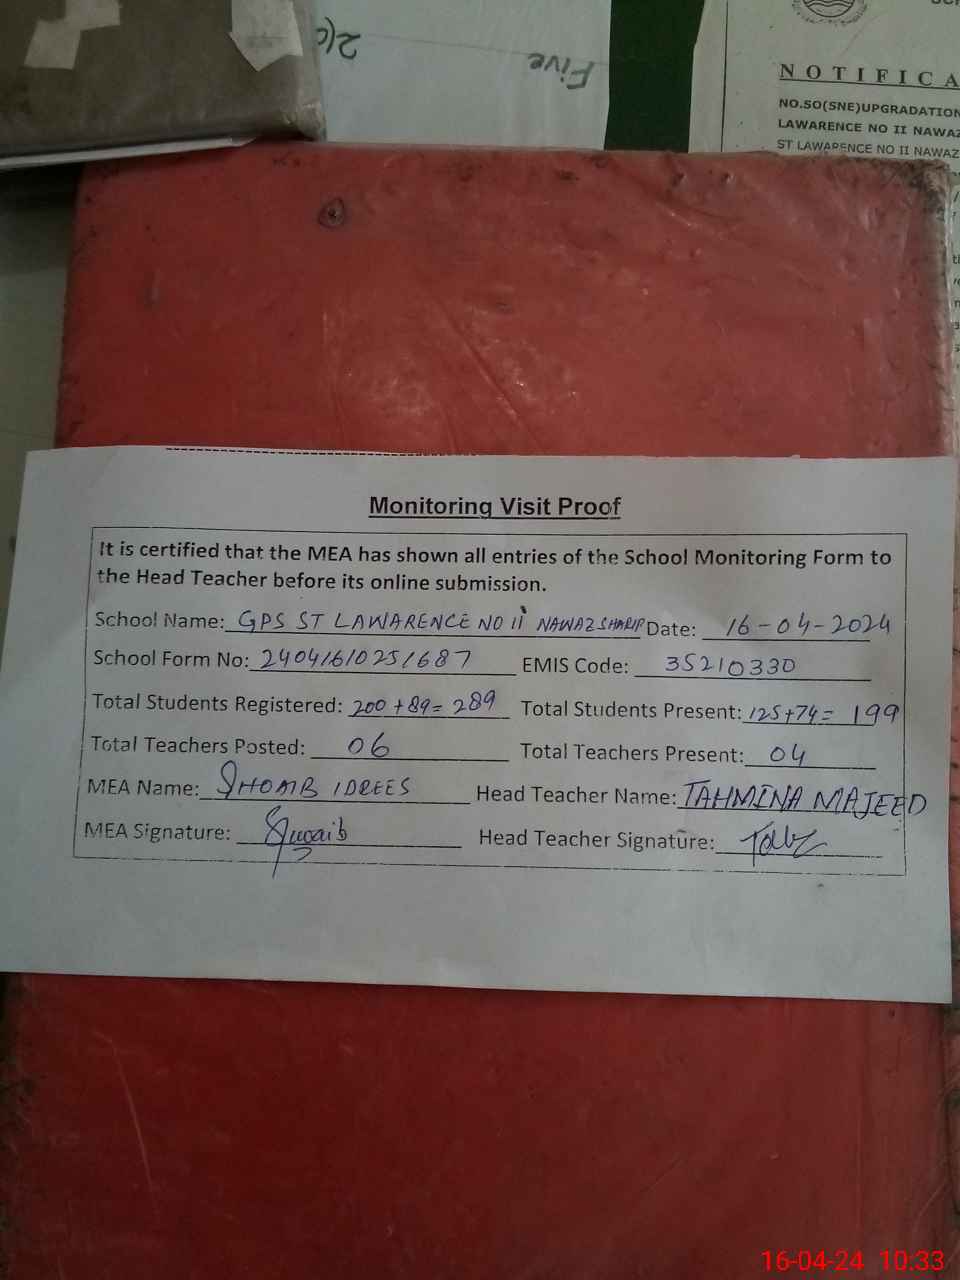 2(c)
Five
NOTIFICA
NO.SO(SNE)UPGRADATION
LAWARENCE NO II NAWAZ
ST LAWARENCE NO II NAWAZ
Monitoring Visit Proof
It is certified that the MEA has shown all entries of the School Monitoring Form to
the Head Teacher before its online submission.
School Name: GPS ST LAWARENCE NO ii NAWAZ SHARIF Date: 16-04-2024
School Form No: 24041610251687 EMIS Code: 35210330
Total Students Registered: 200+89=289 Total Students Present: 125+74=199
Total Teachers Posted: 06 Total Teachers Present: 04
MEA Name: SHOAIB IDREES Head Teacher Name: TAHMINA MAJEED
MEA Signature: Shoaib Head Teacher Signature:
16-04-24 10:33